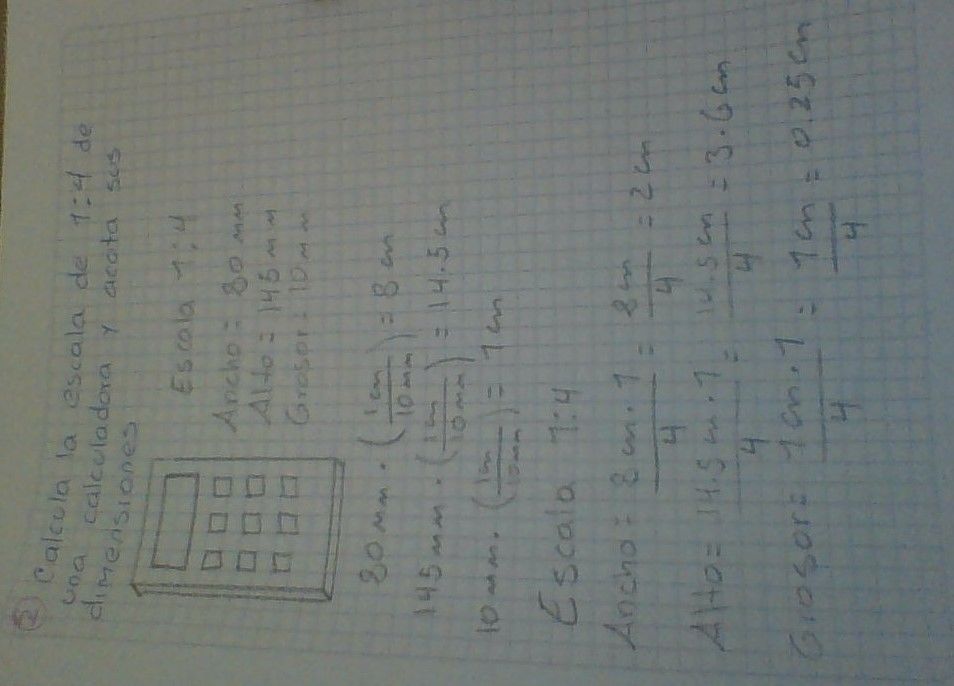 2 Calcula la escala de 1:4 de
una calculadora y acota sus
dimensiones
Escala 1:4
Ancho= 80 mm
Alto= 145mm
Grosor= 10mm
80mm · (1cm/10mm) = 8 cm
145mm · (1cm/10mm) = 14.5cm
10mm · (1cm/10mm) = 1cm
Escala 1:4
Ancho= 8cm · 1/4 = 8cm/4 = 2cm
Alto= 14.5cm · 1/4 = 14.5cm/4 = 3.6cm
Grosor= 1cm · 1/4 = 1cm/4 = 0.25cm